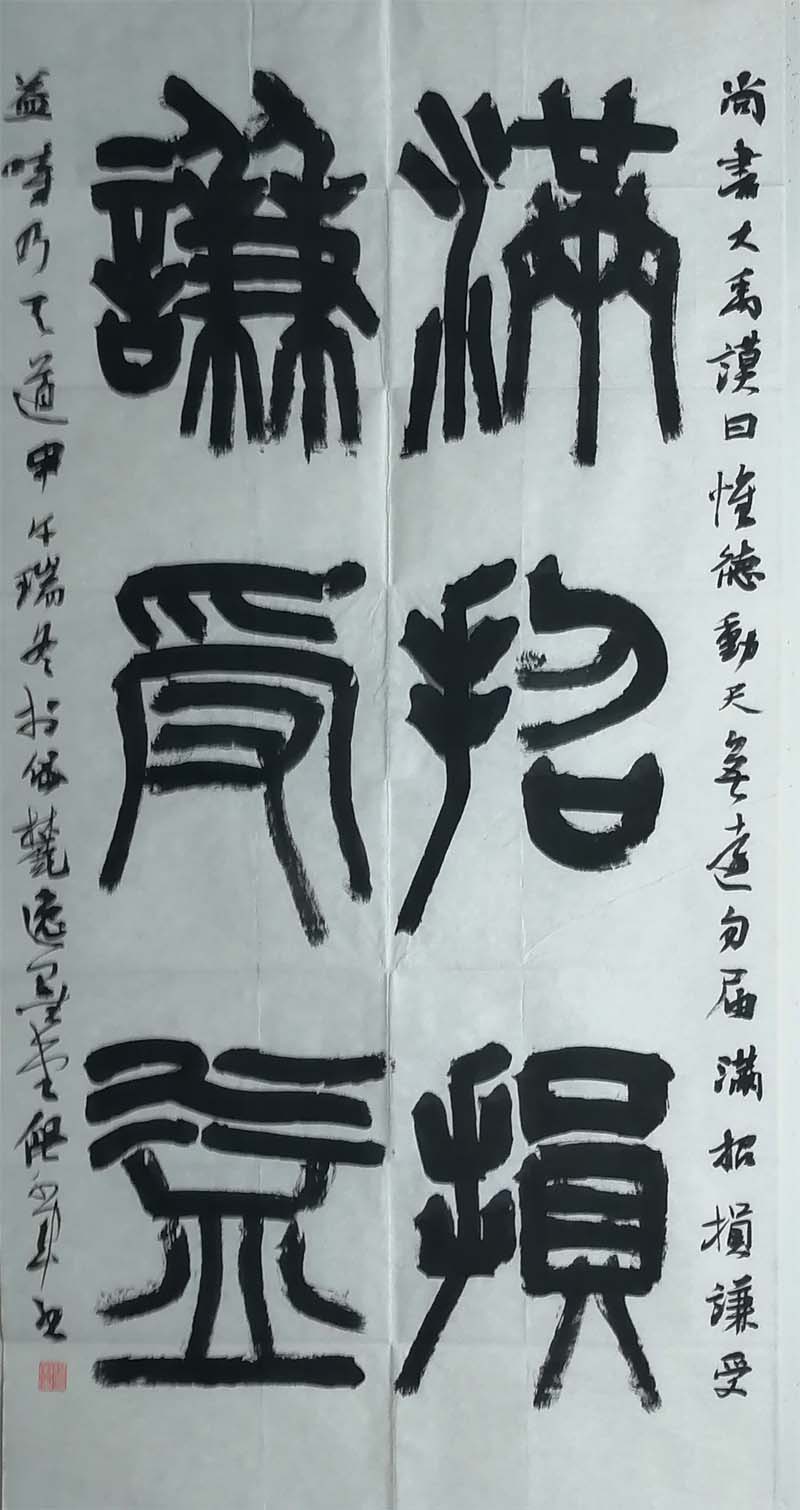 尚書大禹謨曰惟德動天無遠勿屆滿招損謙受
滿招損
謙受益
益時乃天道甲午瑞冬於